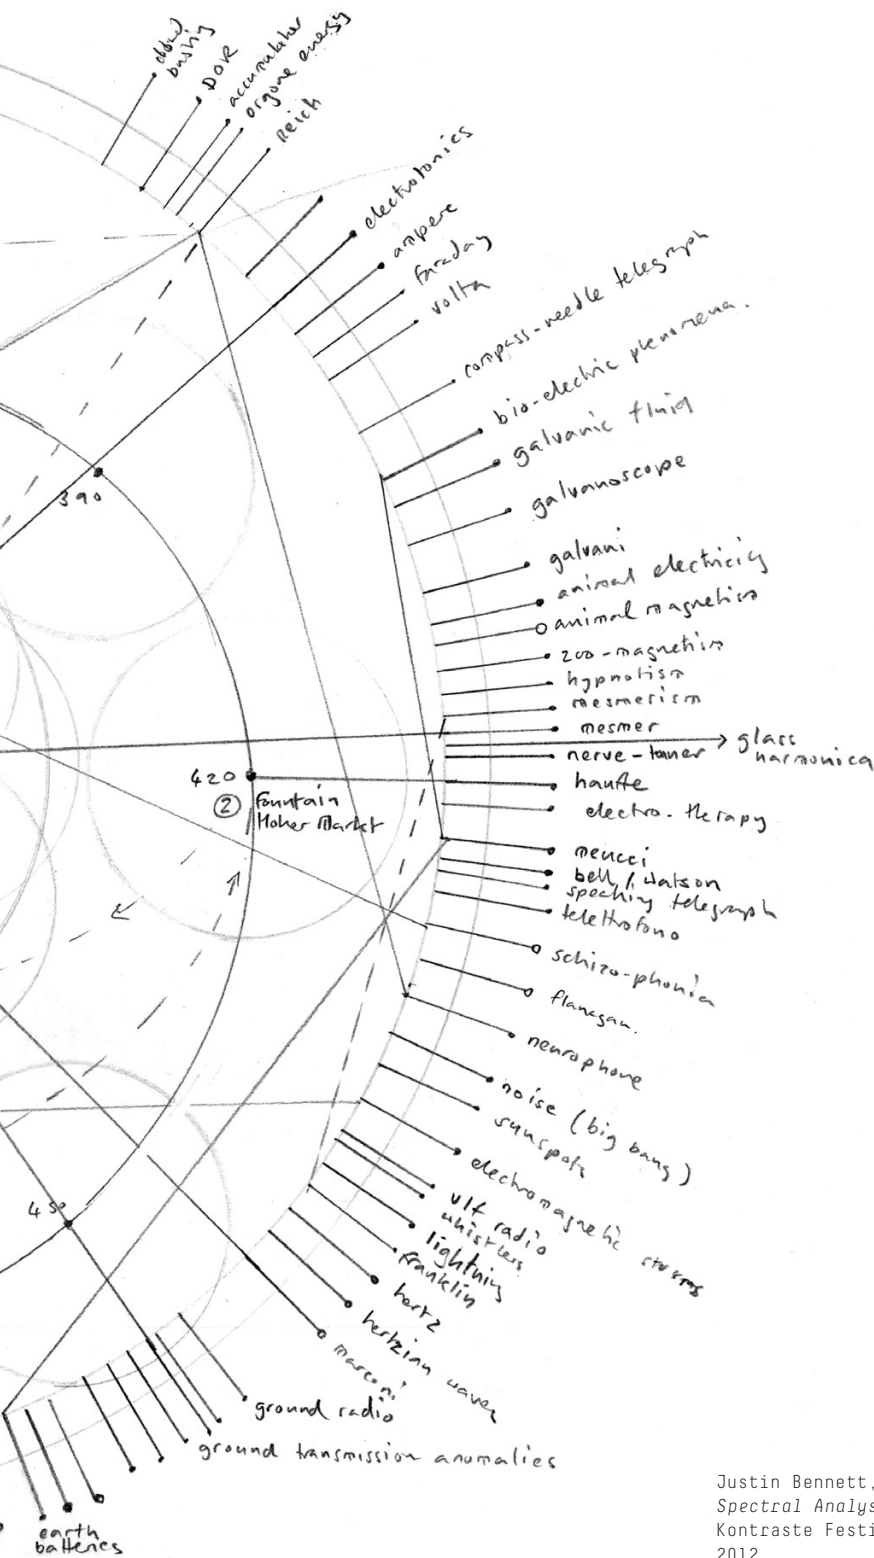 cloud
busting
DOR
accumulator
orgone energy
Reich
electrotonics
ampere
faraday
volta
compass-needle telegraph
bio-electric phenomena.
galvanic fluid
galvanoscope
galvani
animal electricity
animal magnetism
zoo-magnetism
hypnotism
mesmerism
mesmer
glass
harmonica
nerve-tuner
hauffe
electro-therapy
meucci
bell / watson
speaking telegraph
telettrofono
schizo-phonia
flanagan.
neurophone
noise (big bang)
sunspots
electromagnetic storms
vlf radio
whistlers
lightning
franklin
hertz
hertzian waves
marconi
ground radio
ground transmission anomalies
earth
batteries
390
420
② Fountain
Hoher Markt
450
Justin Bennett,
Spectral Analys
Kontraste Festi
2012